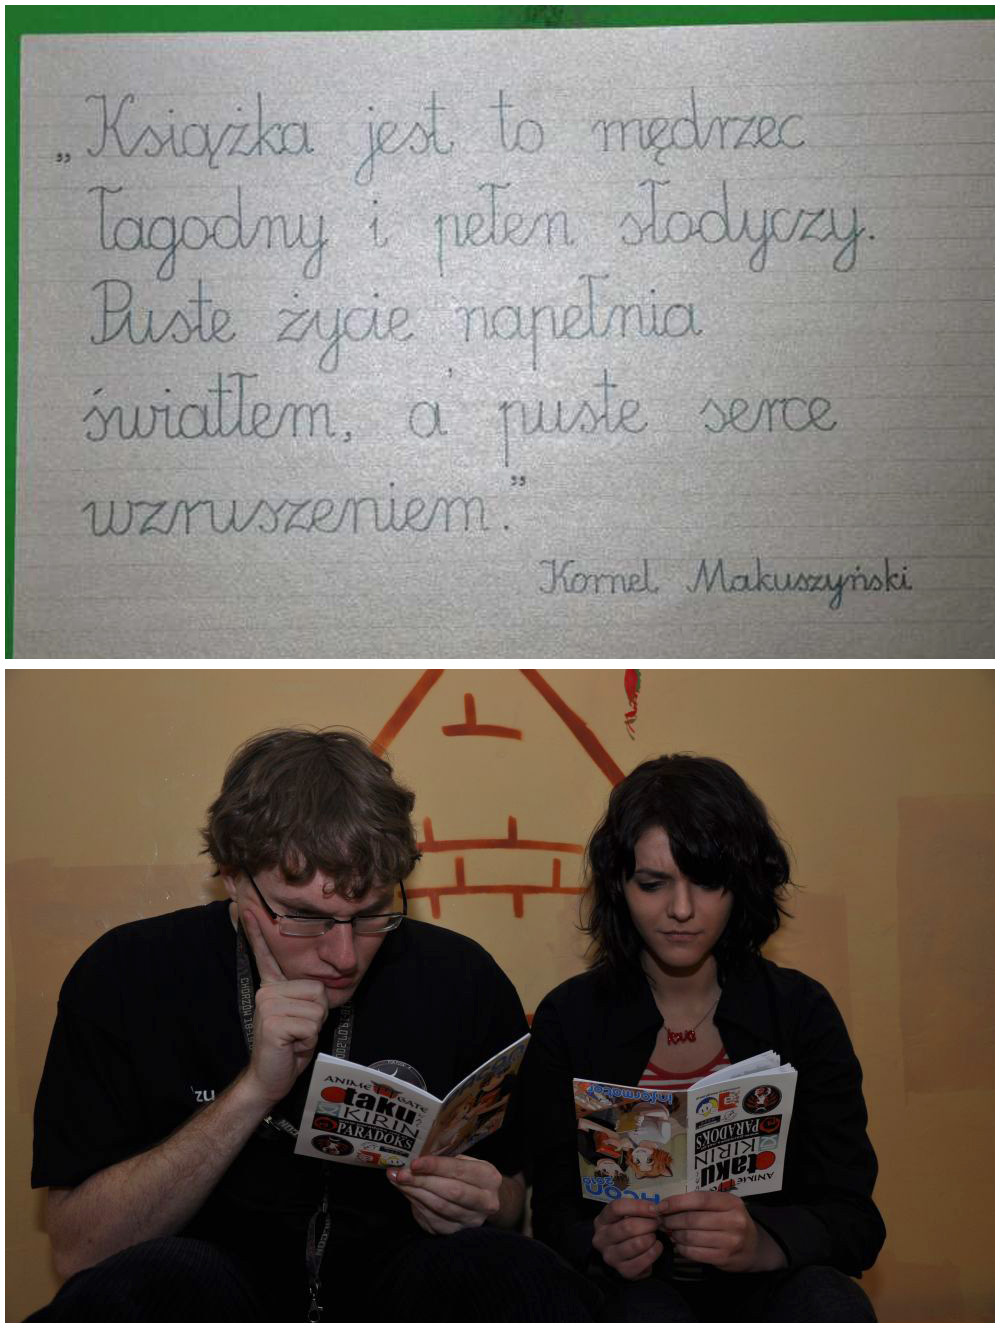 „Książka jest to mędrzec
łagodny i pełen słodyczy.
Puste życie napełnia
światłem, a puste serce
wzruszeniem.”
Kornel Makuszyński
CHORZÓW 18-19
ANIME GATE
otaku
KIRIN
PARADOKS
love
informator
2010
ANIME
otaku
KIRIN
PARADOKS